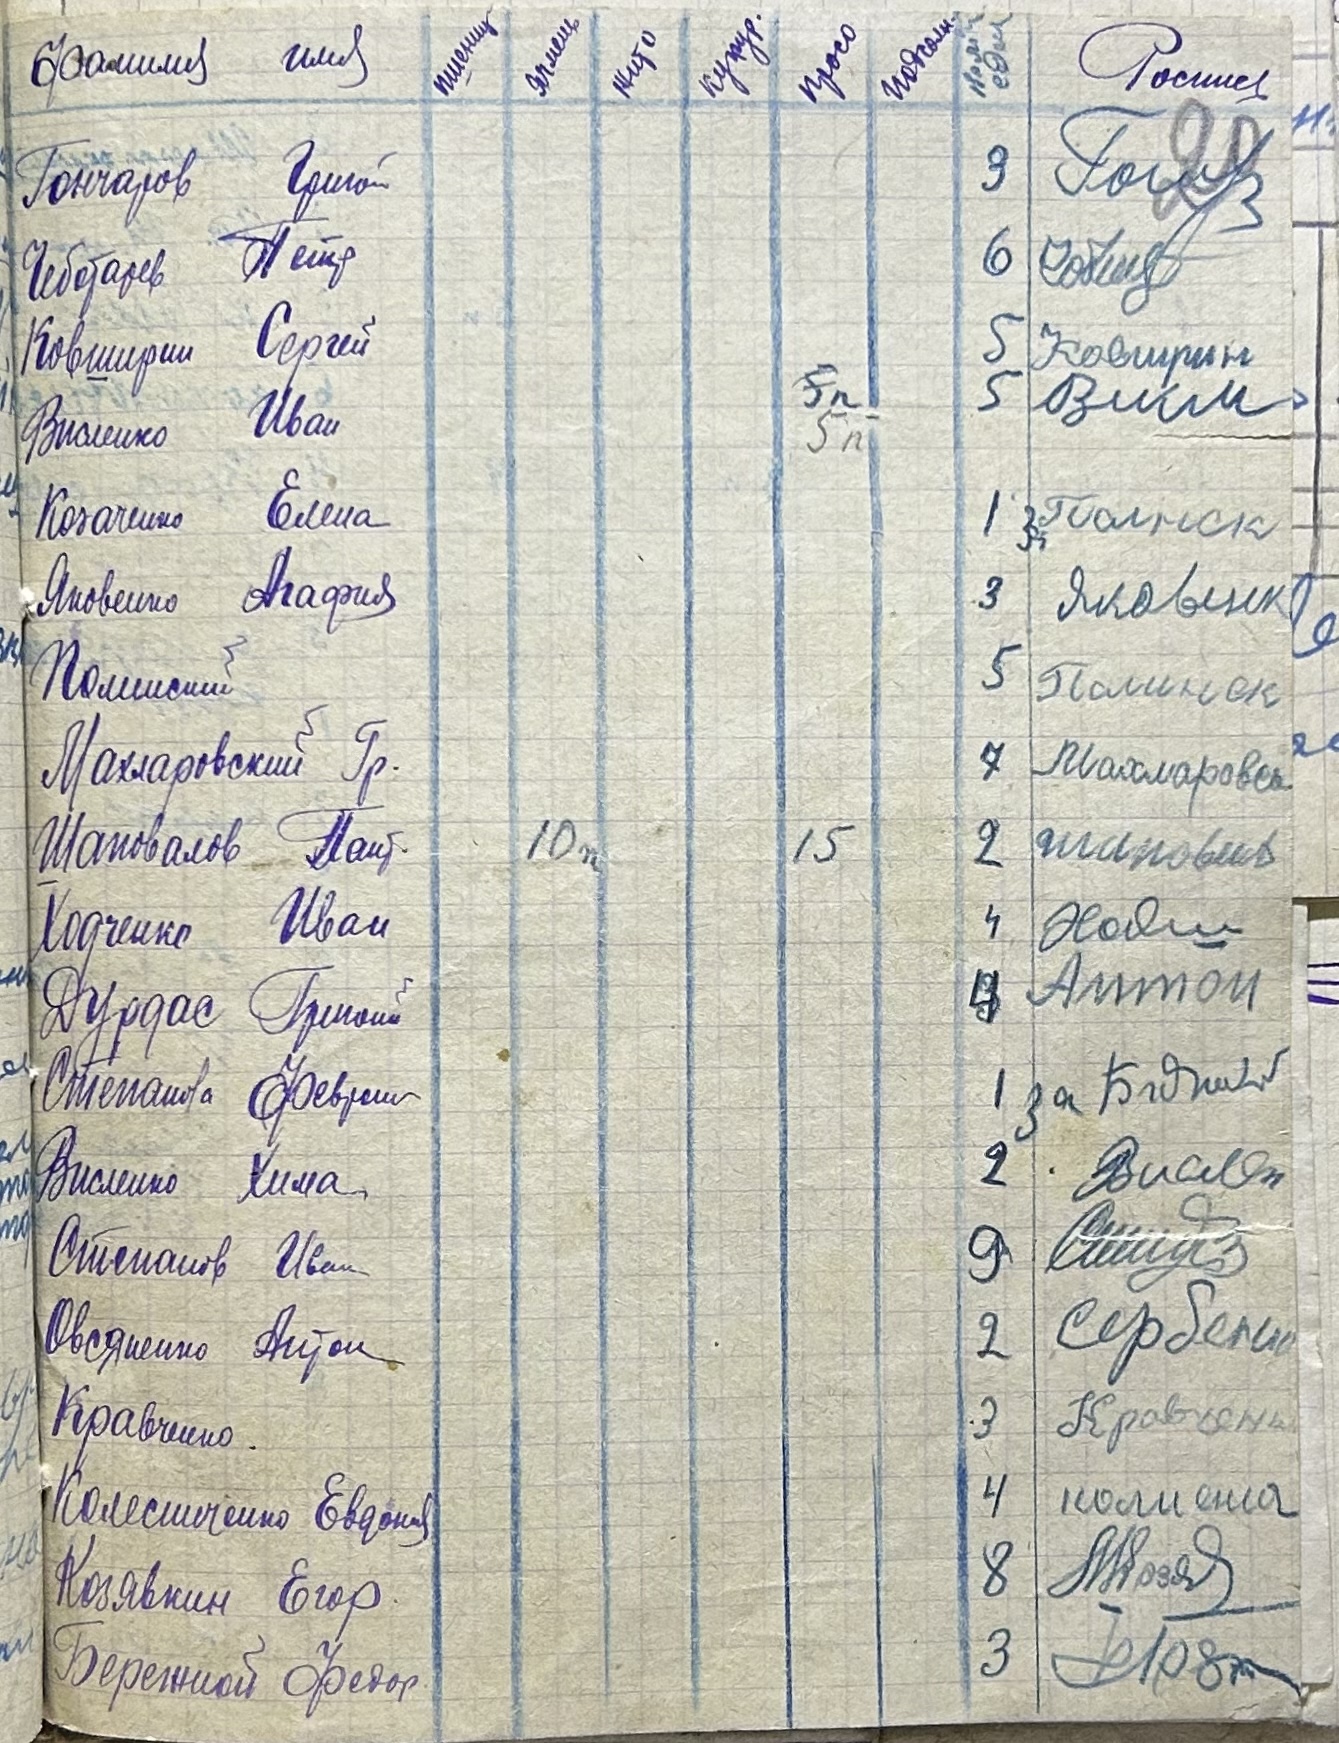 Фамилия имя Пшениц Ячмень Жито Кукур. Просо Подсолн. Роспись
20
Гончаров Григой 9
Чеботарев Петр 6
Ковширин Сергей 5 Ковширин
Висленко Иван 5п 5
5п
Козаченко Елена 1 за Полинск
Яковенко Агафия 3 Яковенк
Полинский 5 Полинск
Махларовский Гр. 7 Махларовск
Шаповалов Пант. 10п 15 2 Шаповал
Ходченко Иван 4
Дурдас Григоий Антон
Степанова Феврония 1 за
Висленко Хима 2 Вислен
Степанов Иван 9
Овсяненко Антон 2 Сербенко
Кравченко. 3 Кравченк
Колесниченко Евдокия 4
Козявкин Егор. 8
Бережной Федор 3